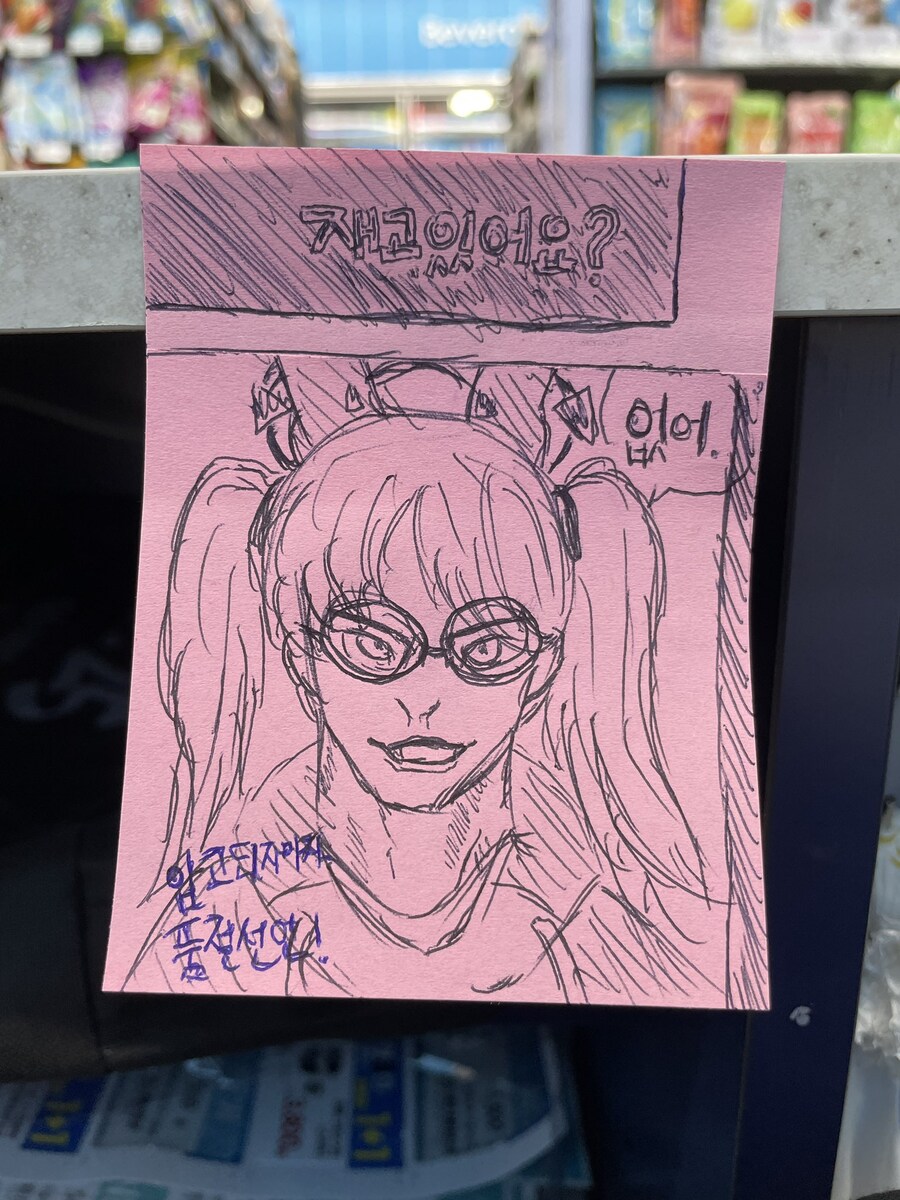 재고있어요?
없어.
입고되자마자
품절선언!
1+1
1+1